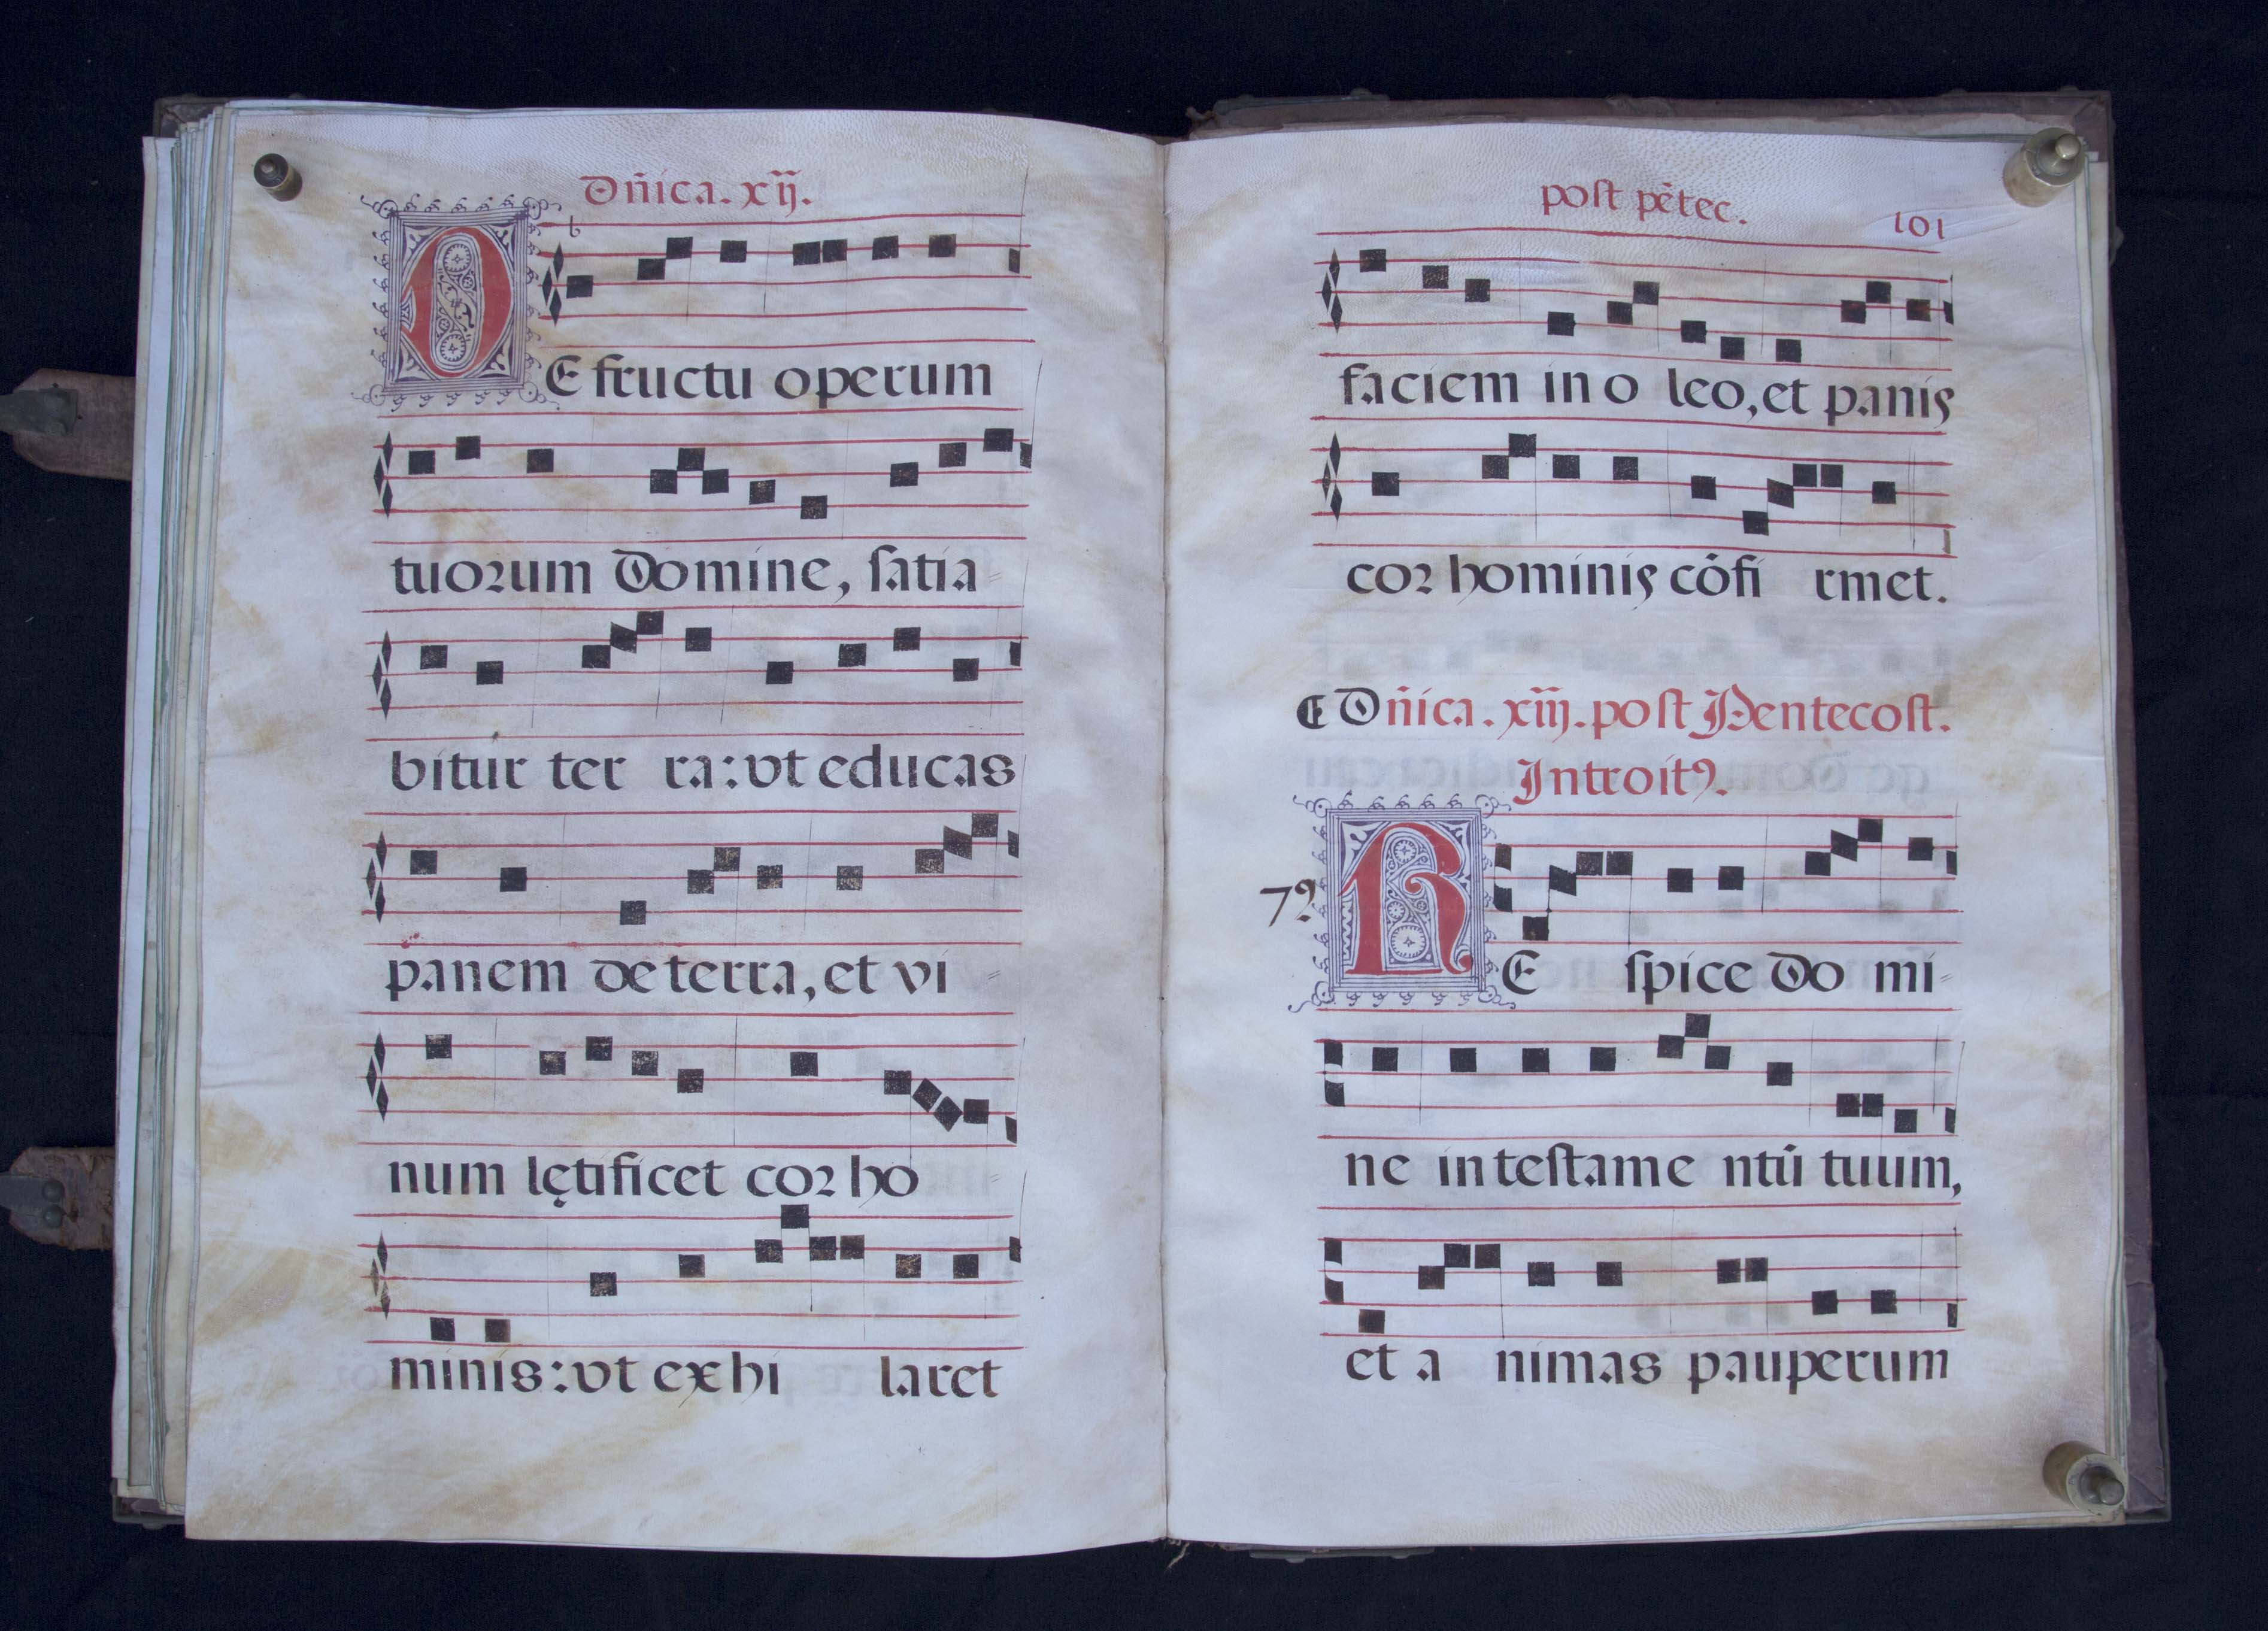 Dñica. xij.
DE fructu operum
tuorum Domine, satia-
bitur ter ra: vt educas
panem de terra, et vi-
num lętificet cor ho
minis: vt ex hi laret
post pẽtec. 101
faciem in o leo, et panis
cor hominis cõfi rmet.
Dñica. xiij. post Pentecost.
Introitꝰ.
7
RE spice Do mi-
ne in testame ntũ tuum,
et a nimas pauperum